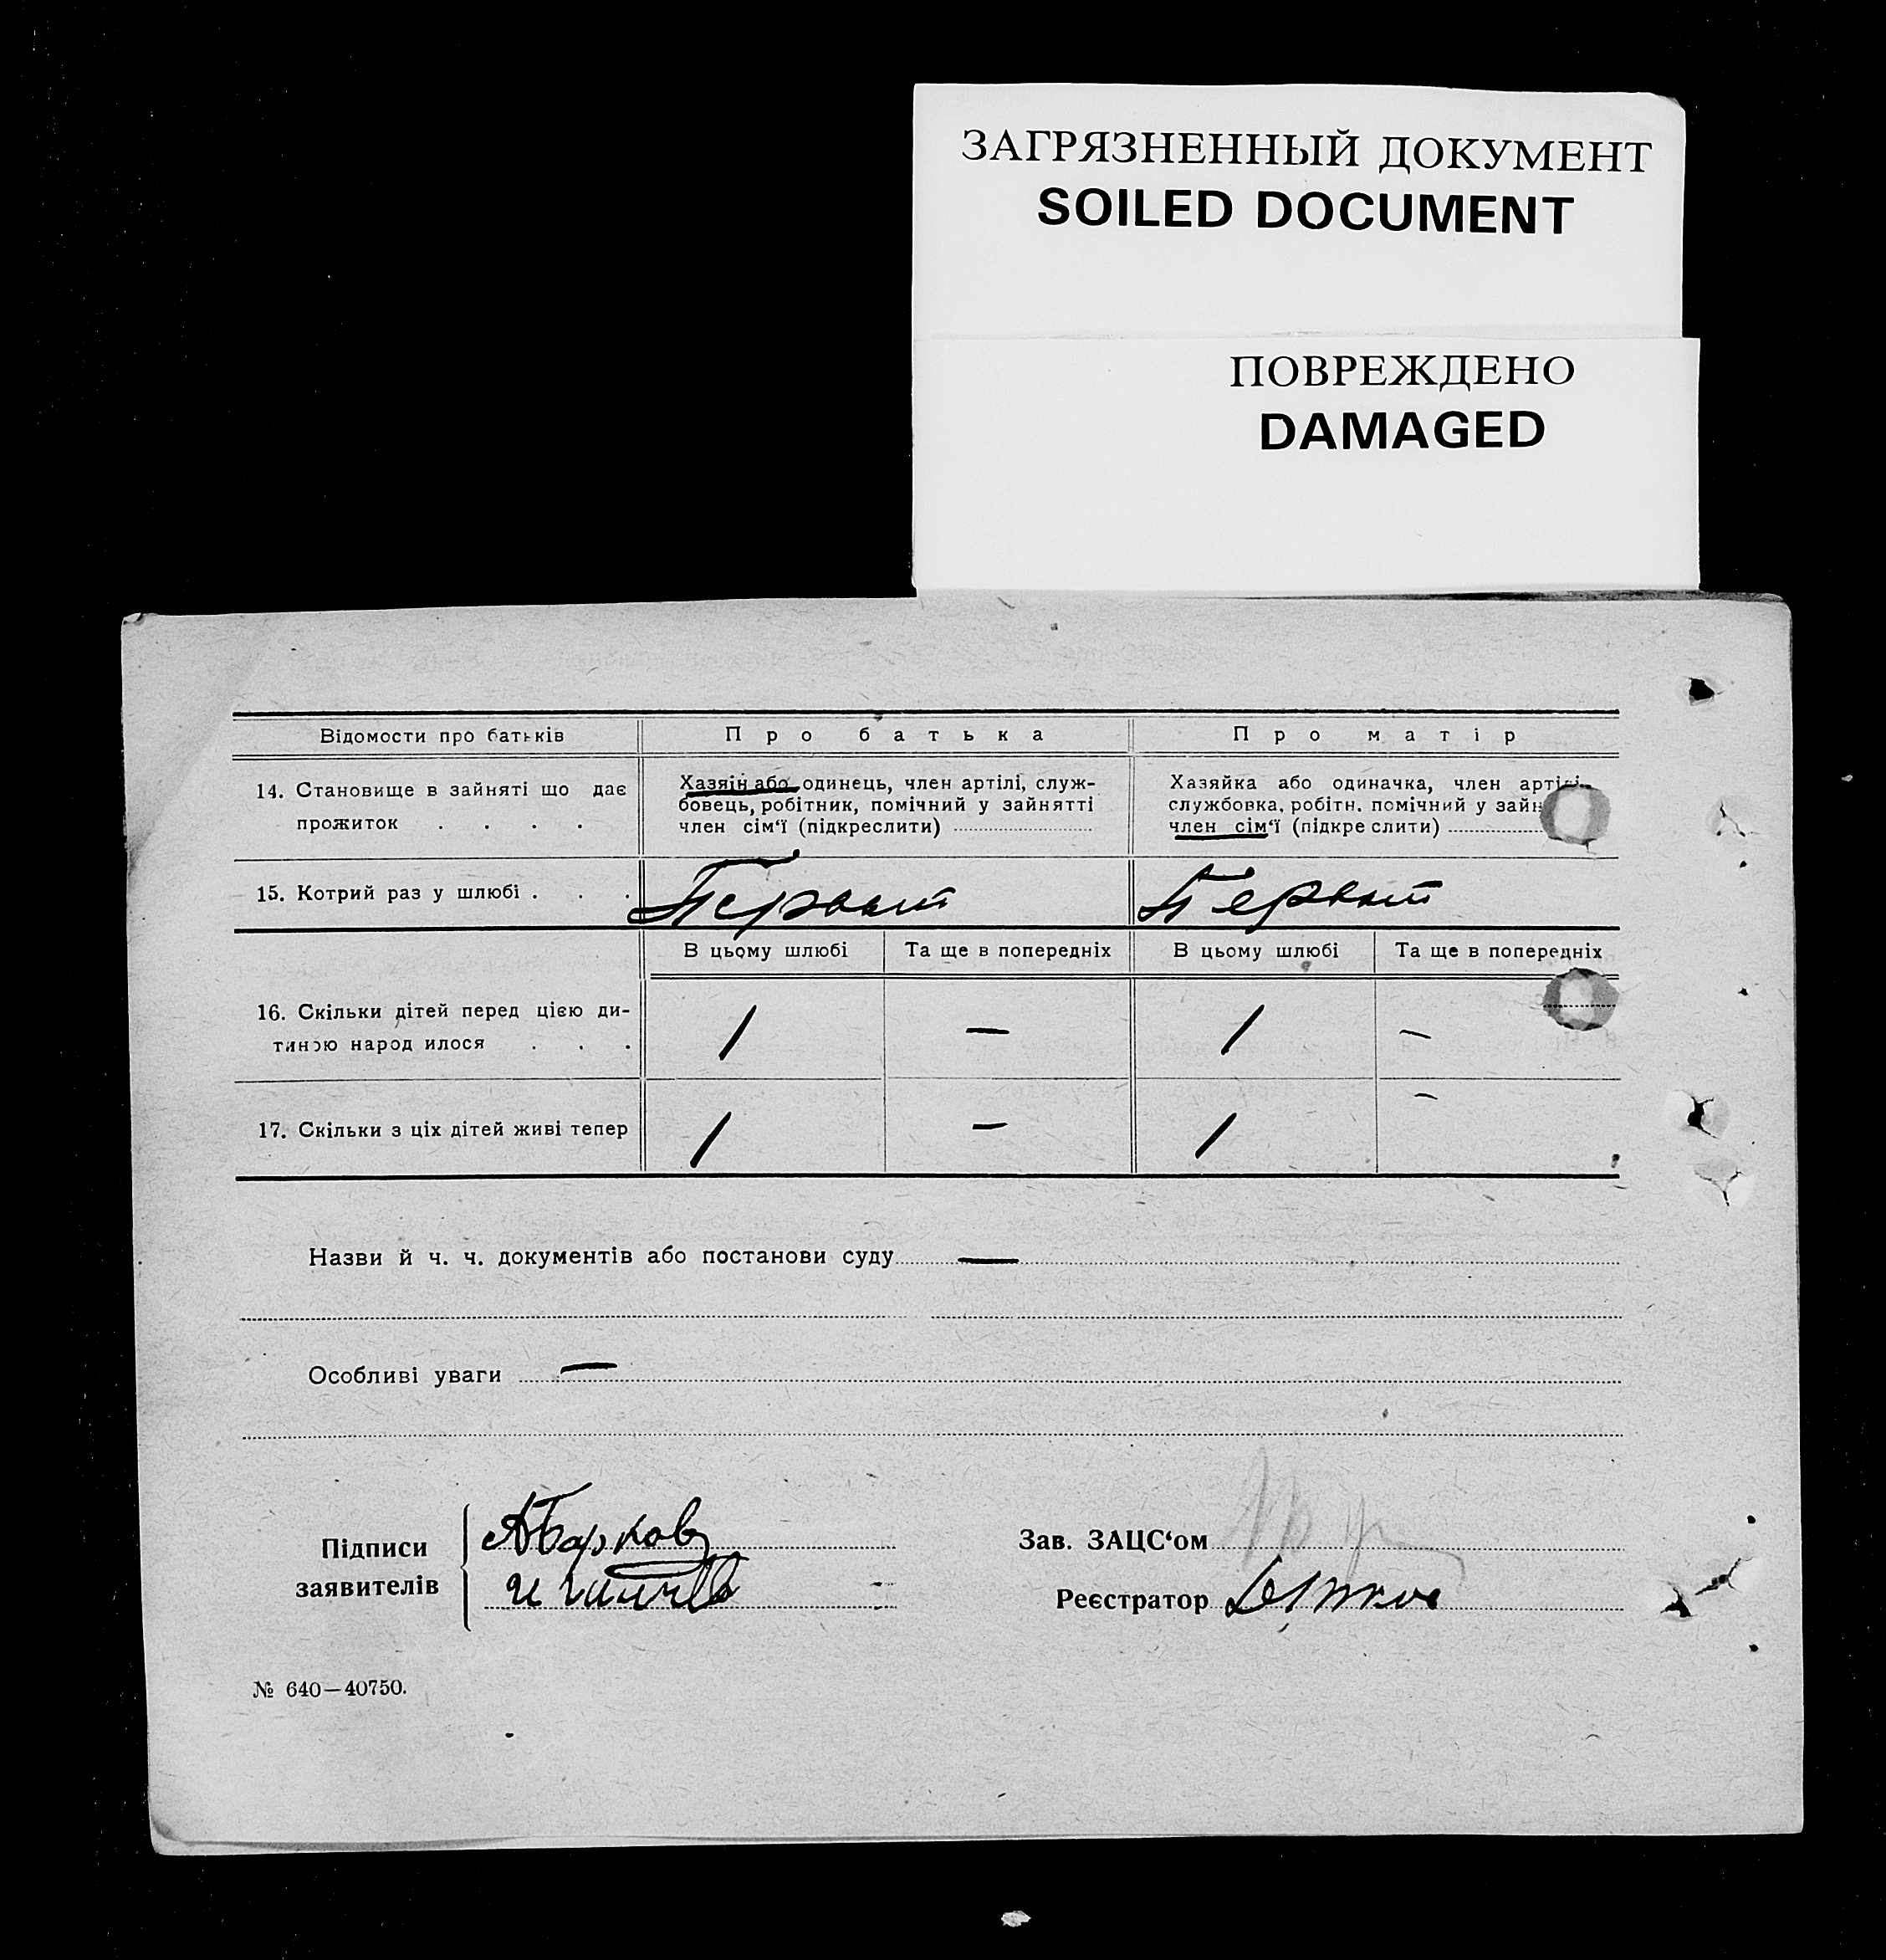 ЗАГРЯЗНЕННЫЙ ДОКУМЕНТ
SOILED DOCUMENT
ПОВРЕЖДЕНО
DAMAGED
Відомости про батьків Про батька Про матір
14. Становище в зайняті що дає прожиток . . . .
Хазяін або одинець, член артілі, служ-
бовець, робітник, помічний у зайнятті
член сім‘ї (підкреслити)
Хазяйка або одиначка, член артілі,
службовка, робітн. помічний у зайн
член сім‘ї (підкре слити)
15. Котрий раз у шлюбі . . . Первый Первый
В цьому шлюбі Та ще в попередніх В цьому шлюбі Та ще в попередніх
16. Скільки дітей перед цією ди-
тиною народ илося . . . 1 — 1 —
17. Скільки з ціх дітей живі тепер 1 — 1 —
Назви й ч. ч. документів або постанови суду —
Особливі уваги —
Підписи
заявителів
АБарков
Зав. ЗАЦС‘ом
Реєстратор
№ 640—40750.